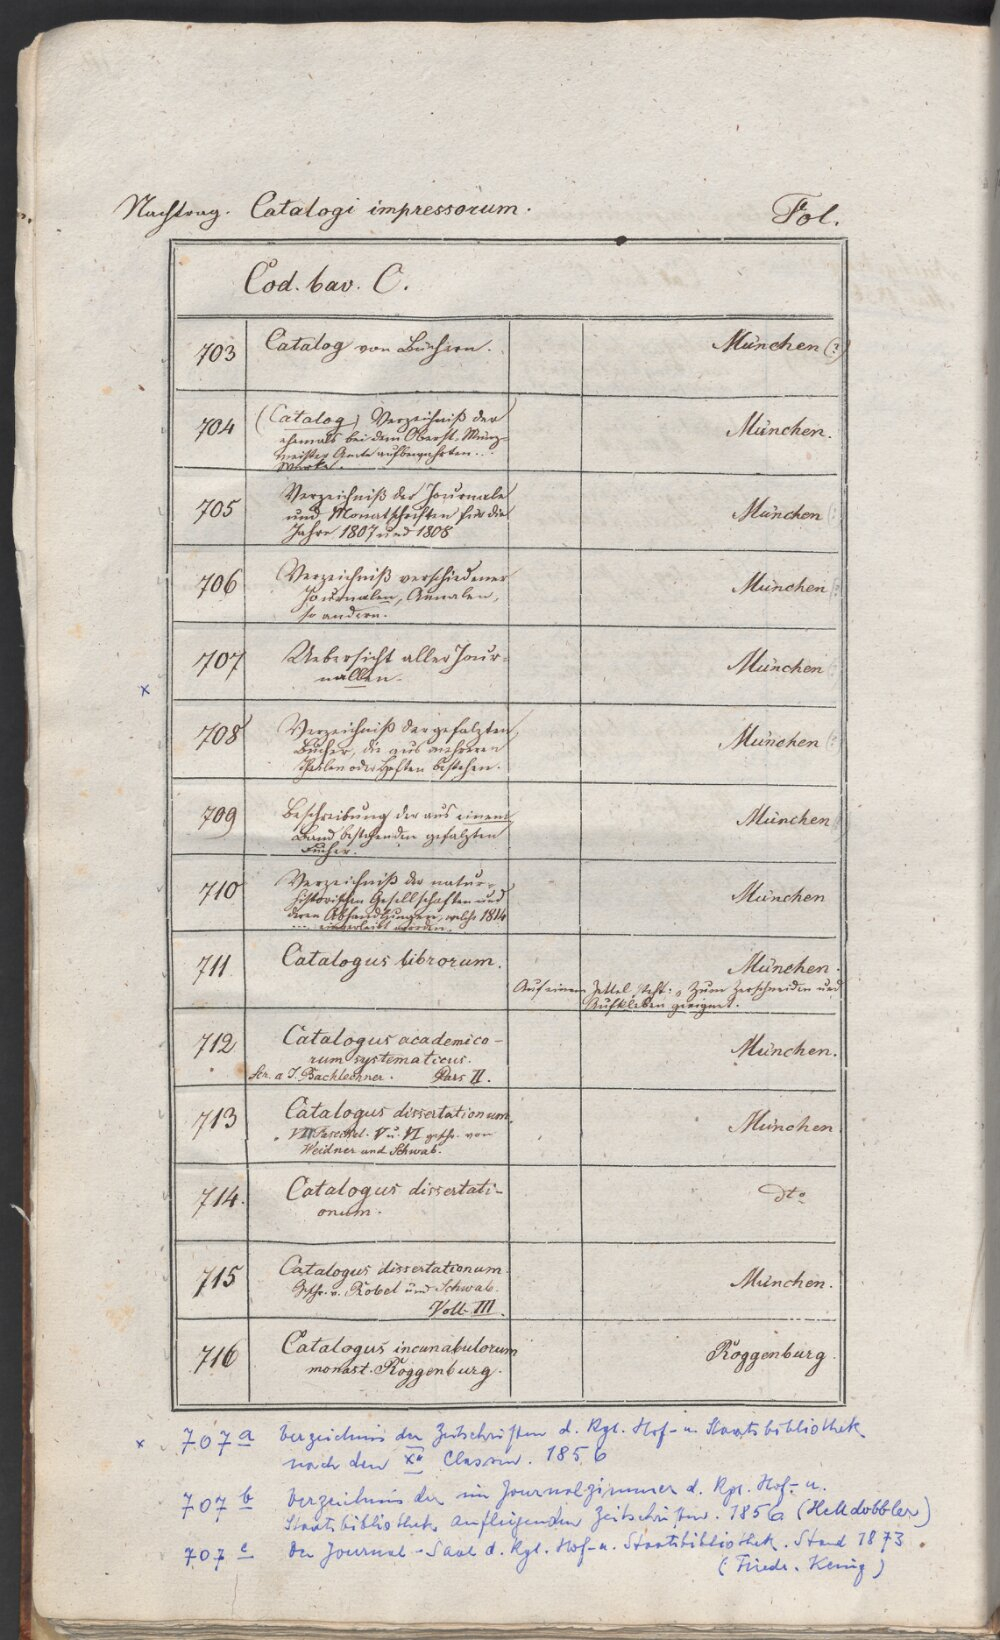 Nachtrag. Catalogi impressorum. Fol.
Cod. bav. C.
703 Catalog von Büchern. München (?)
704 (Catalog) Verzeichniß der München.
ehemals bei dem Oberst. Münz-
meister Amte aufbewahrten...
Werke.
705 Verzeichniß der Journale München (?
und Monatschriften für die
Jahre 1807 und 1808
706 Verzeichniß verschiedener München (?
Journalen, Annalen,
so andern.
707 Uebersicht aller Jour- München (
x nallen.
708 Verzeichniß der gefalzten München (?
Bücher, die aus mehreren
Theilen oder Heften bestehen.
709 Beschreibung der aus einem München
Band bestehenden gefalzten
Bücher.
710 Verzeichniß der natur- München
historischen Gesellschaften und
deren Abhandlungen, welche 1814
... einverleibt worden.
711 Catalogus librorum. München.
Auf einem Zettel steht: „Zum Zerschneiden und
Aufkleben geeignet.
712 Catalogus academico- München.
rum systematicus.
Scr. a J. Bachlechner. Pars II.
713 Catalogus dissertationum. München
VII Fascikel. V u. VI geschr. von
Weidner und Schwab.
714. Catalogus dissertati- dto
onum.
715 Catalogus dissertationum. München.
Geschr. v. Robel und Schwab.
Voll. III.
716 Catalogus incunabulorum Roggenburg.
monast. Roggenburg.
x 707 a Verzeichnis der Zeitschriften d. Kgl. Hof- u. Staatsbibliothek
nach den XII Classen. 1856
707 b Verzeichnis der im Journalzimmer d. Kgl. Hof- u.
Staatsbibliothek aufliegenden Zeitschriften. 1856 (Helldobbler)
707 c Der Journal-Saal d. Kgl. Hof- u. Staatsbibliothek. Stand 1873
(Friedr. Kenig)